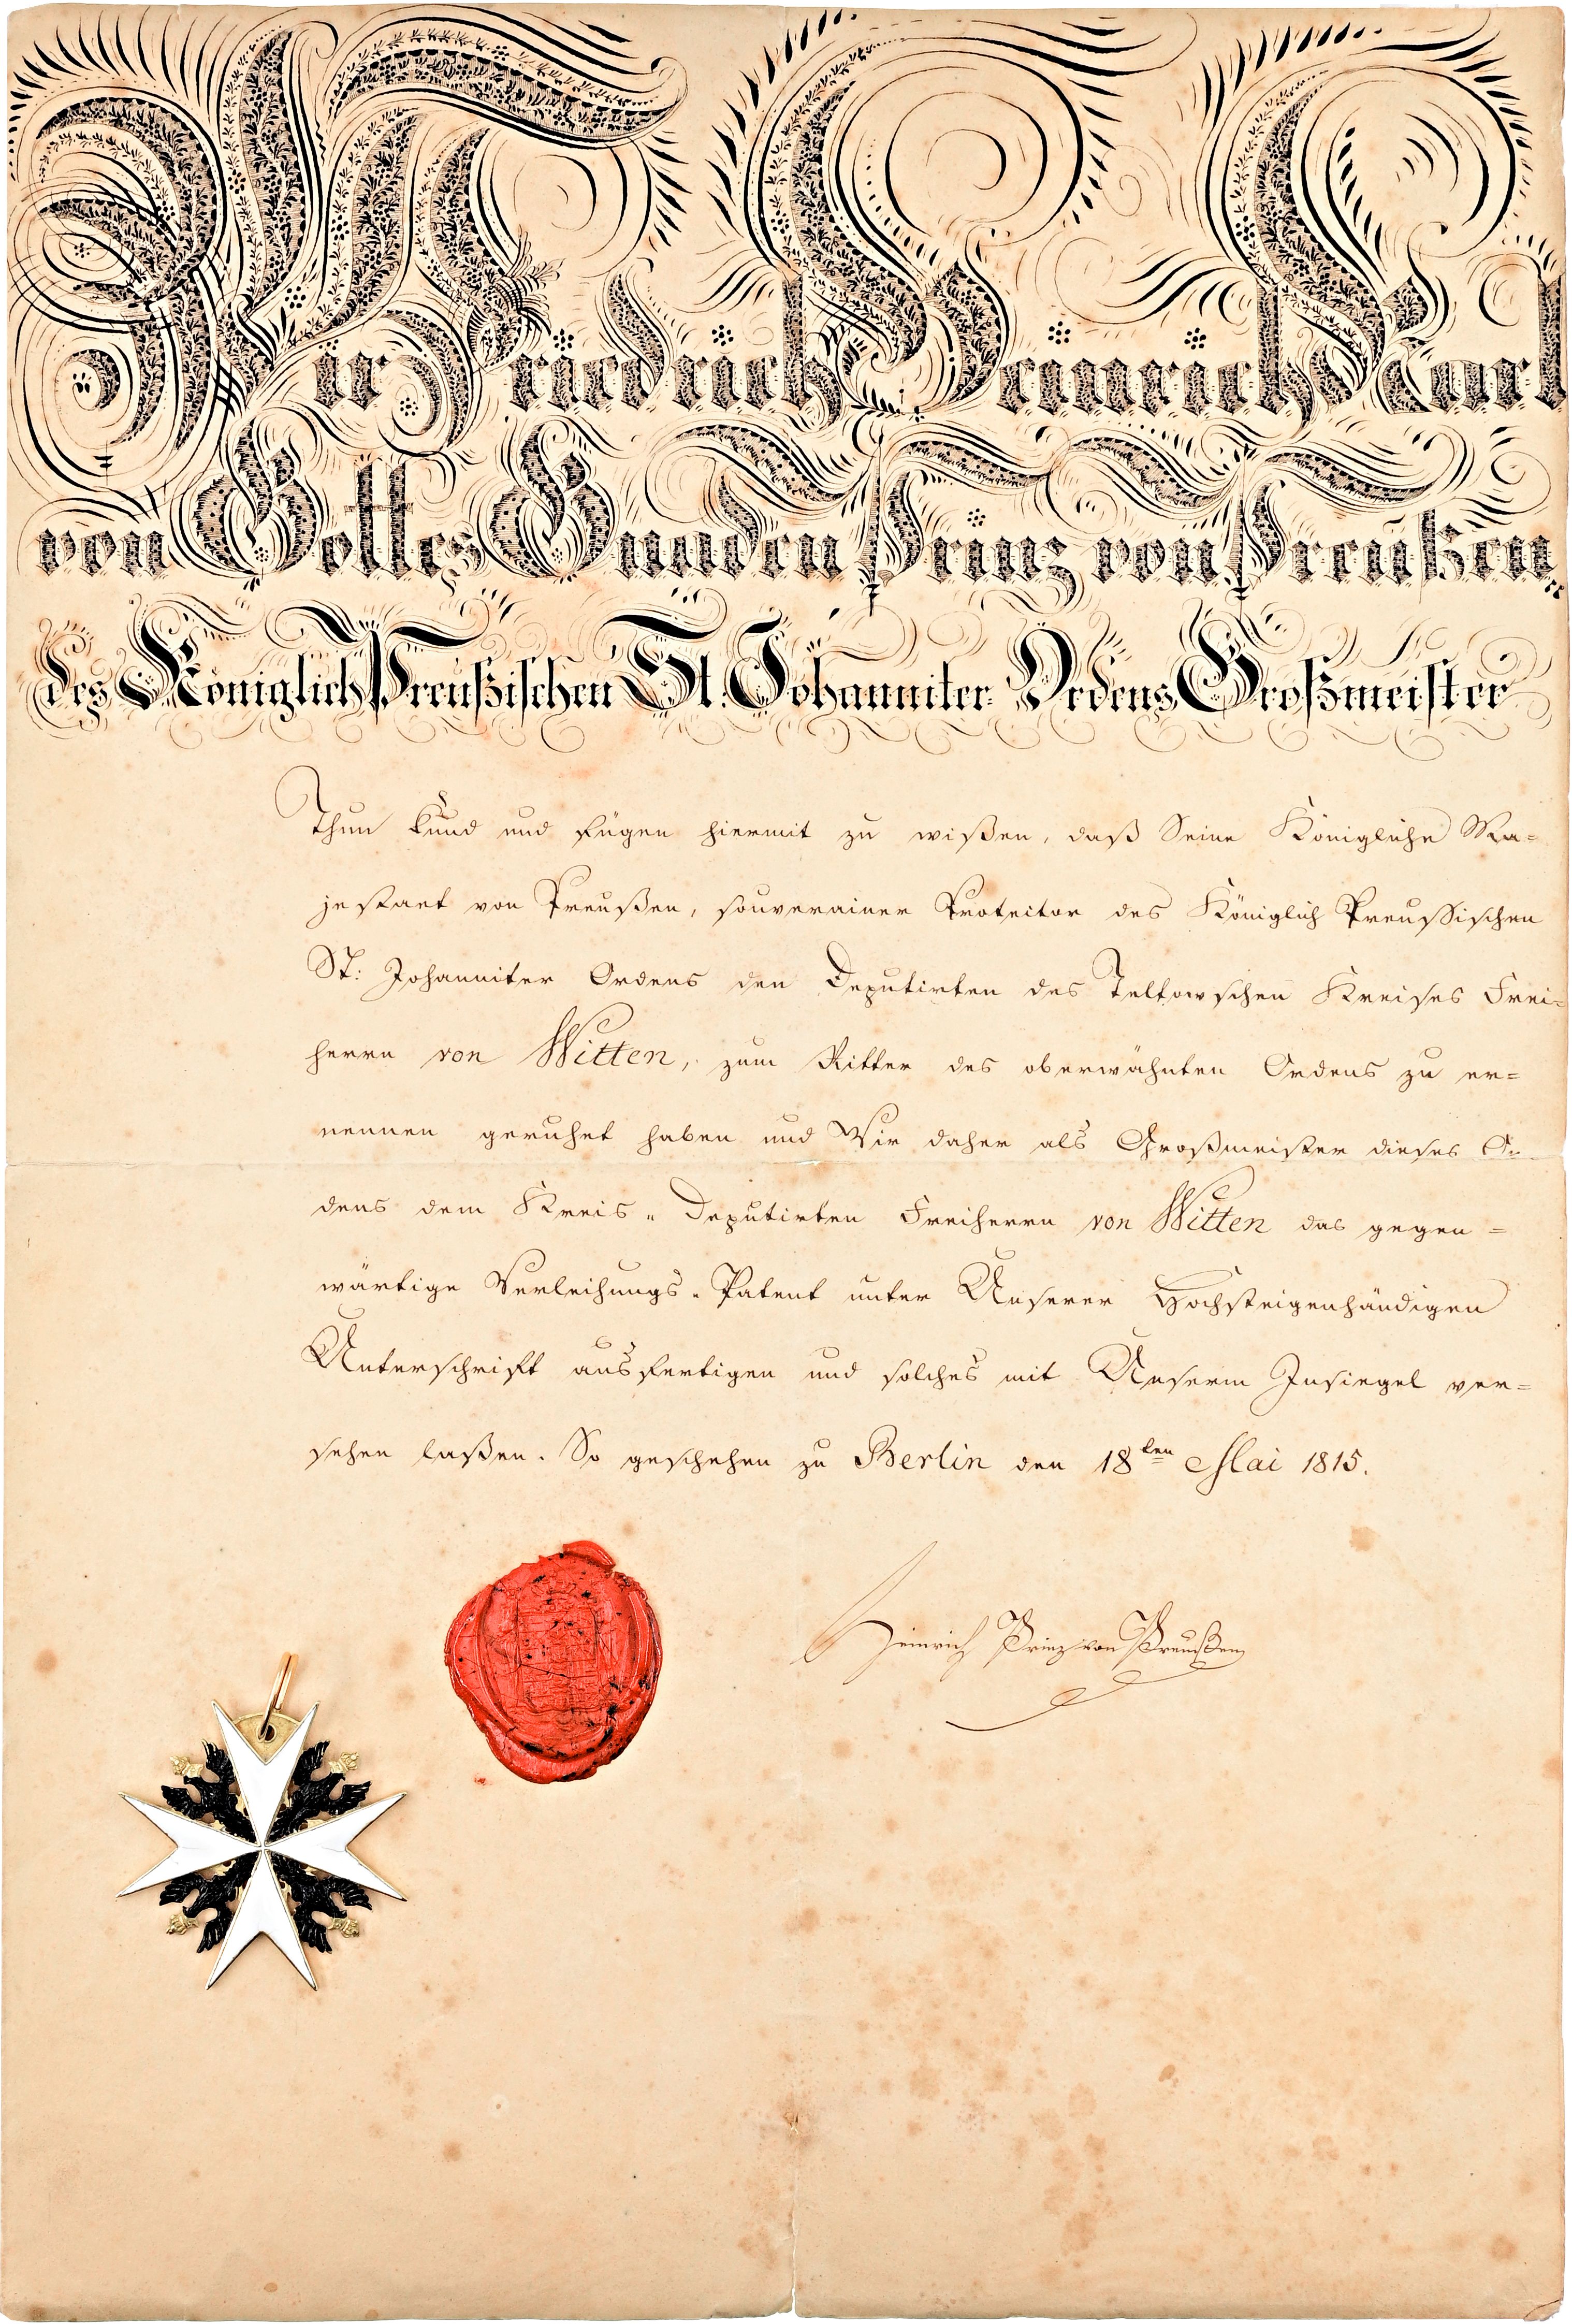 Wir Friedrich Heinrich Karl
von Gottes Gnaden Prinz von Preußen,
des Königlich Preußischen St. Johanniter Ordens Großmeister
Thun kund und fügen hiermit zu wißen, daß Seine Königliche Ma=
jestaet von Preußen, souverainer Protector des Königlich Preussischen
St: Johanniter Ordens den Deputirten des Teltowschen Kreises Frei=
herrn von Witten, zum Ritter des oberwähnten Ordens zu er=
nennen geruhet haben und Wir daher als Großmeister dieses Or
dens dem Kreis-Deputirten Freiherrn von Witten das gegen=
wärtige Verleihungs-Patent unter Unserer Höchsteigenhändigen
Unterschrift ausfertigen und solches mit Unserm Insiegel ver=
sehen laßen. So geschehen zu Berlin den 18ten Mai 1815.
Heinrich Prinz von Preußen